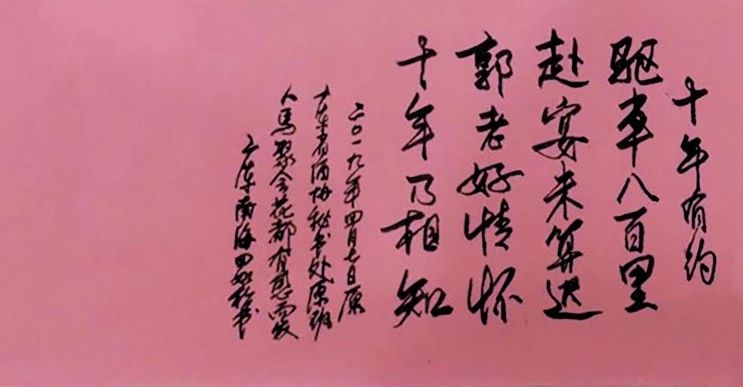 十年有约
驱车八百里
赴宴未算迟
郭老好情怀
十年乃相知
二〇一九年四月七日原
广东省酒协秘书处原班
人马聚会花都有感而发
广东南海田
书